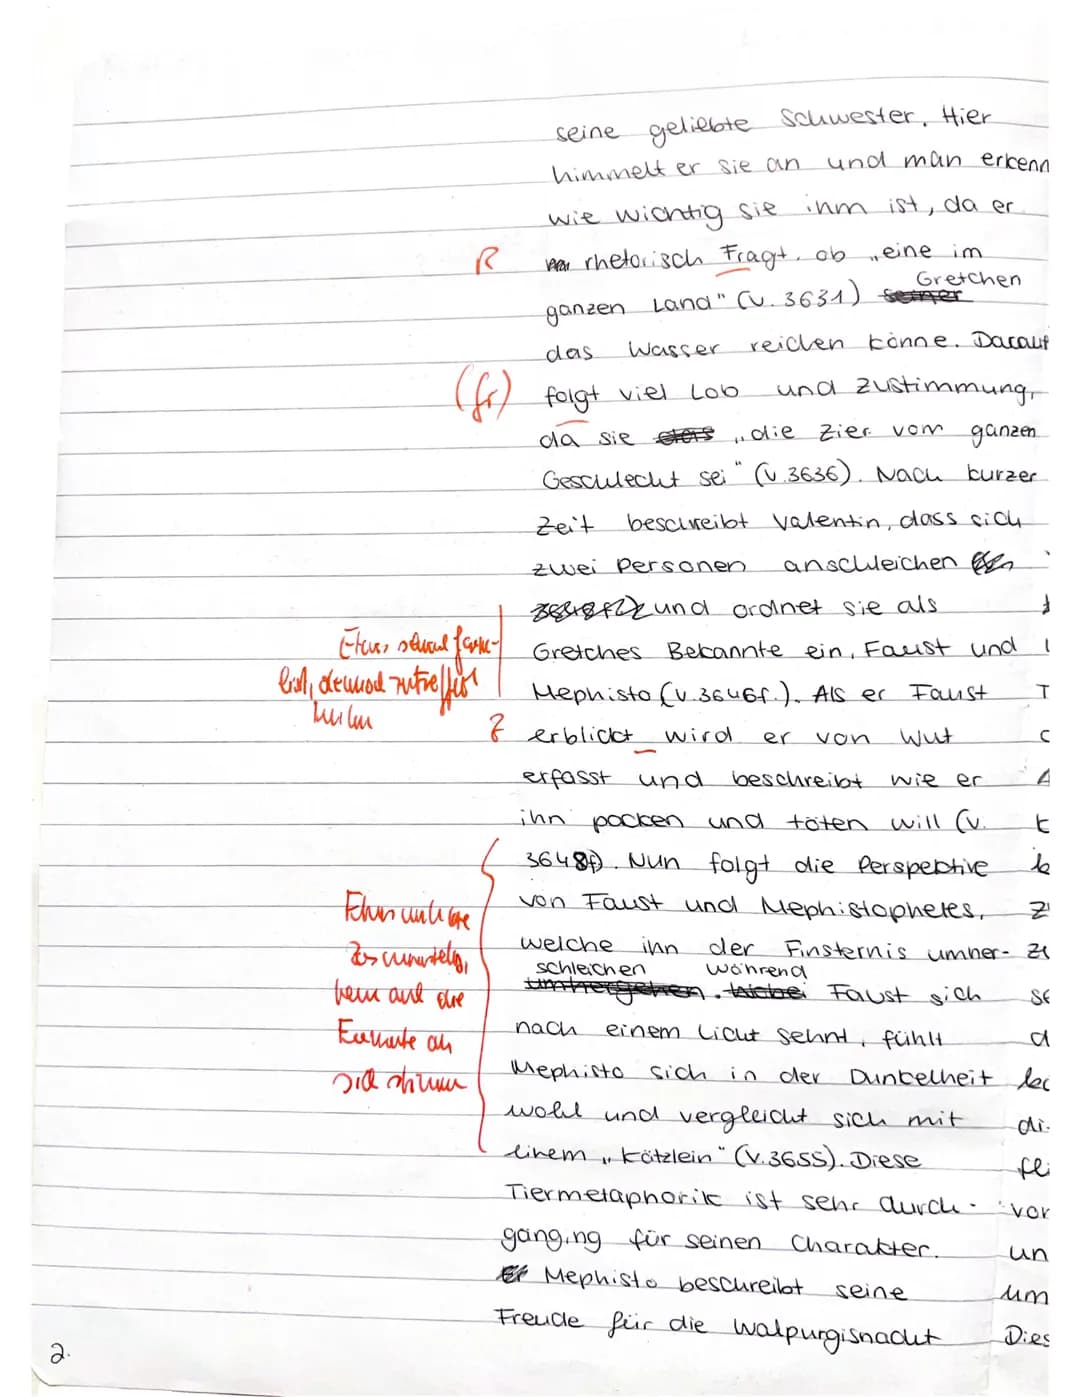 seine geliebte Schwester. Hier
himmelt er sie an und man erkenn
wie wichtig sie ihm ist, da er
R rhetorisch Fragt, ob „eine im
Gretchen
ganzen Land" (v. 3631) seiner
das Wasser reichen könne. Darauf
(fr) folgt viel Lob und Zustimmung,
da sie „die Zier vom ganzen
Geschlecht sei" (v.3636). Nach kurzer
Zeit beschreibt Valentin, dass sich
zwei Personen anschleichen
und ordnet sie als
Etwas schwul
Gretches Bekannte ein, Faust und
Mephisto (v.3646f.). Als er Faust
Z erblickt wird er von Wut
erfasst und beschreibt wie er
ihn packen und töten will (v.
3648f). Nun folgt die Perspektive
von Faust und Mephistopheles,
welche inn der Finsternis umher-
schleichen während
umhergehen. Wobei Faust sich
nach einem Licht sehnt, fühlt
Mephisto sich in der Dunkelheit
wohl und vergleicht sich mit
einem „Kätzlein" (v.3655). Diese
Tiermetaphorik ist sehr durch-
gänging für seinen Charakter.
Er Mephisto beschreibt seine
Freude für die Walpurgisnacht
Dies
2.